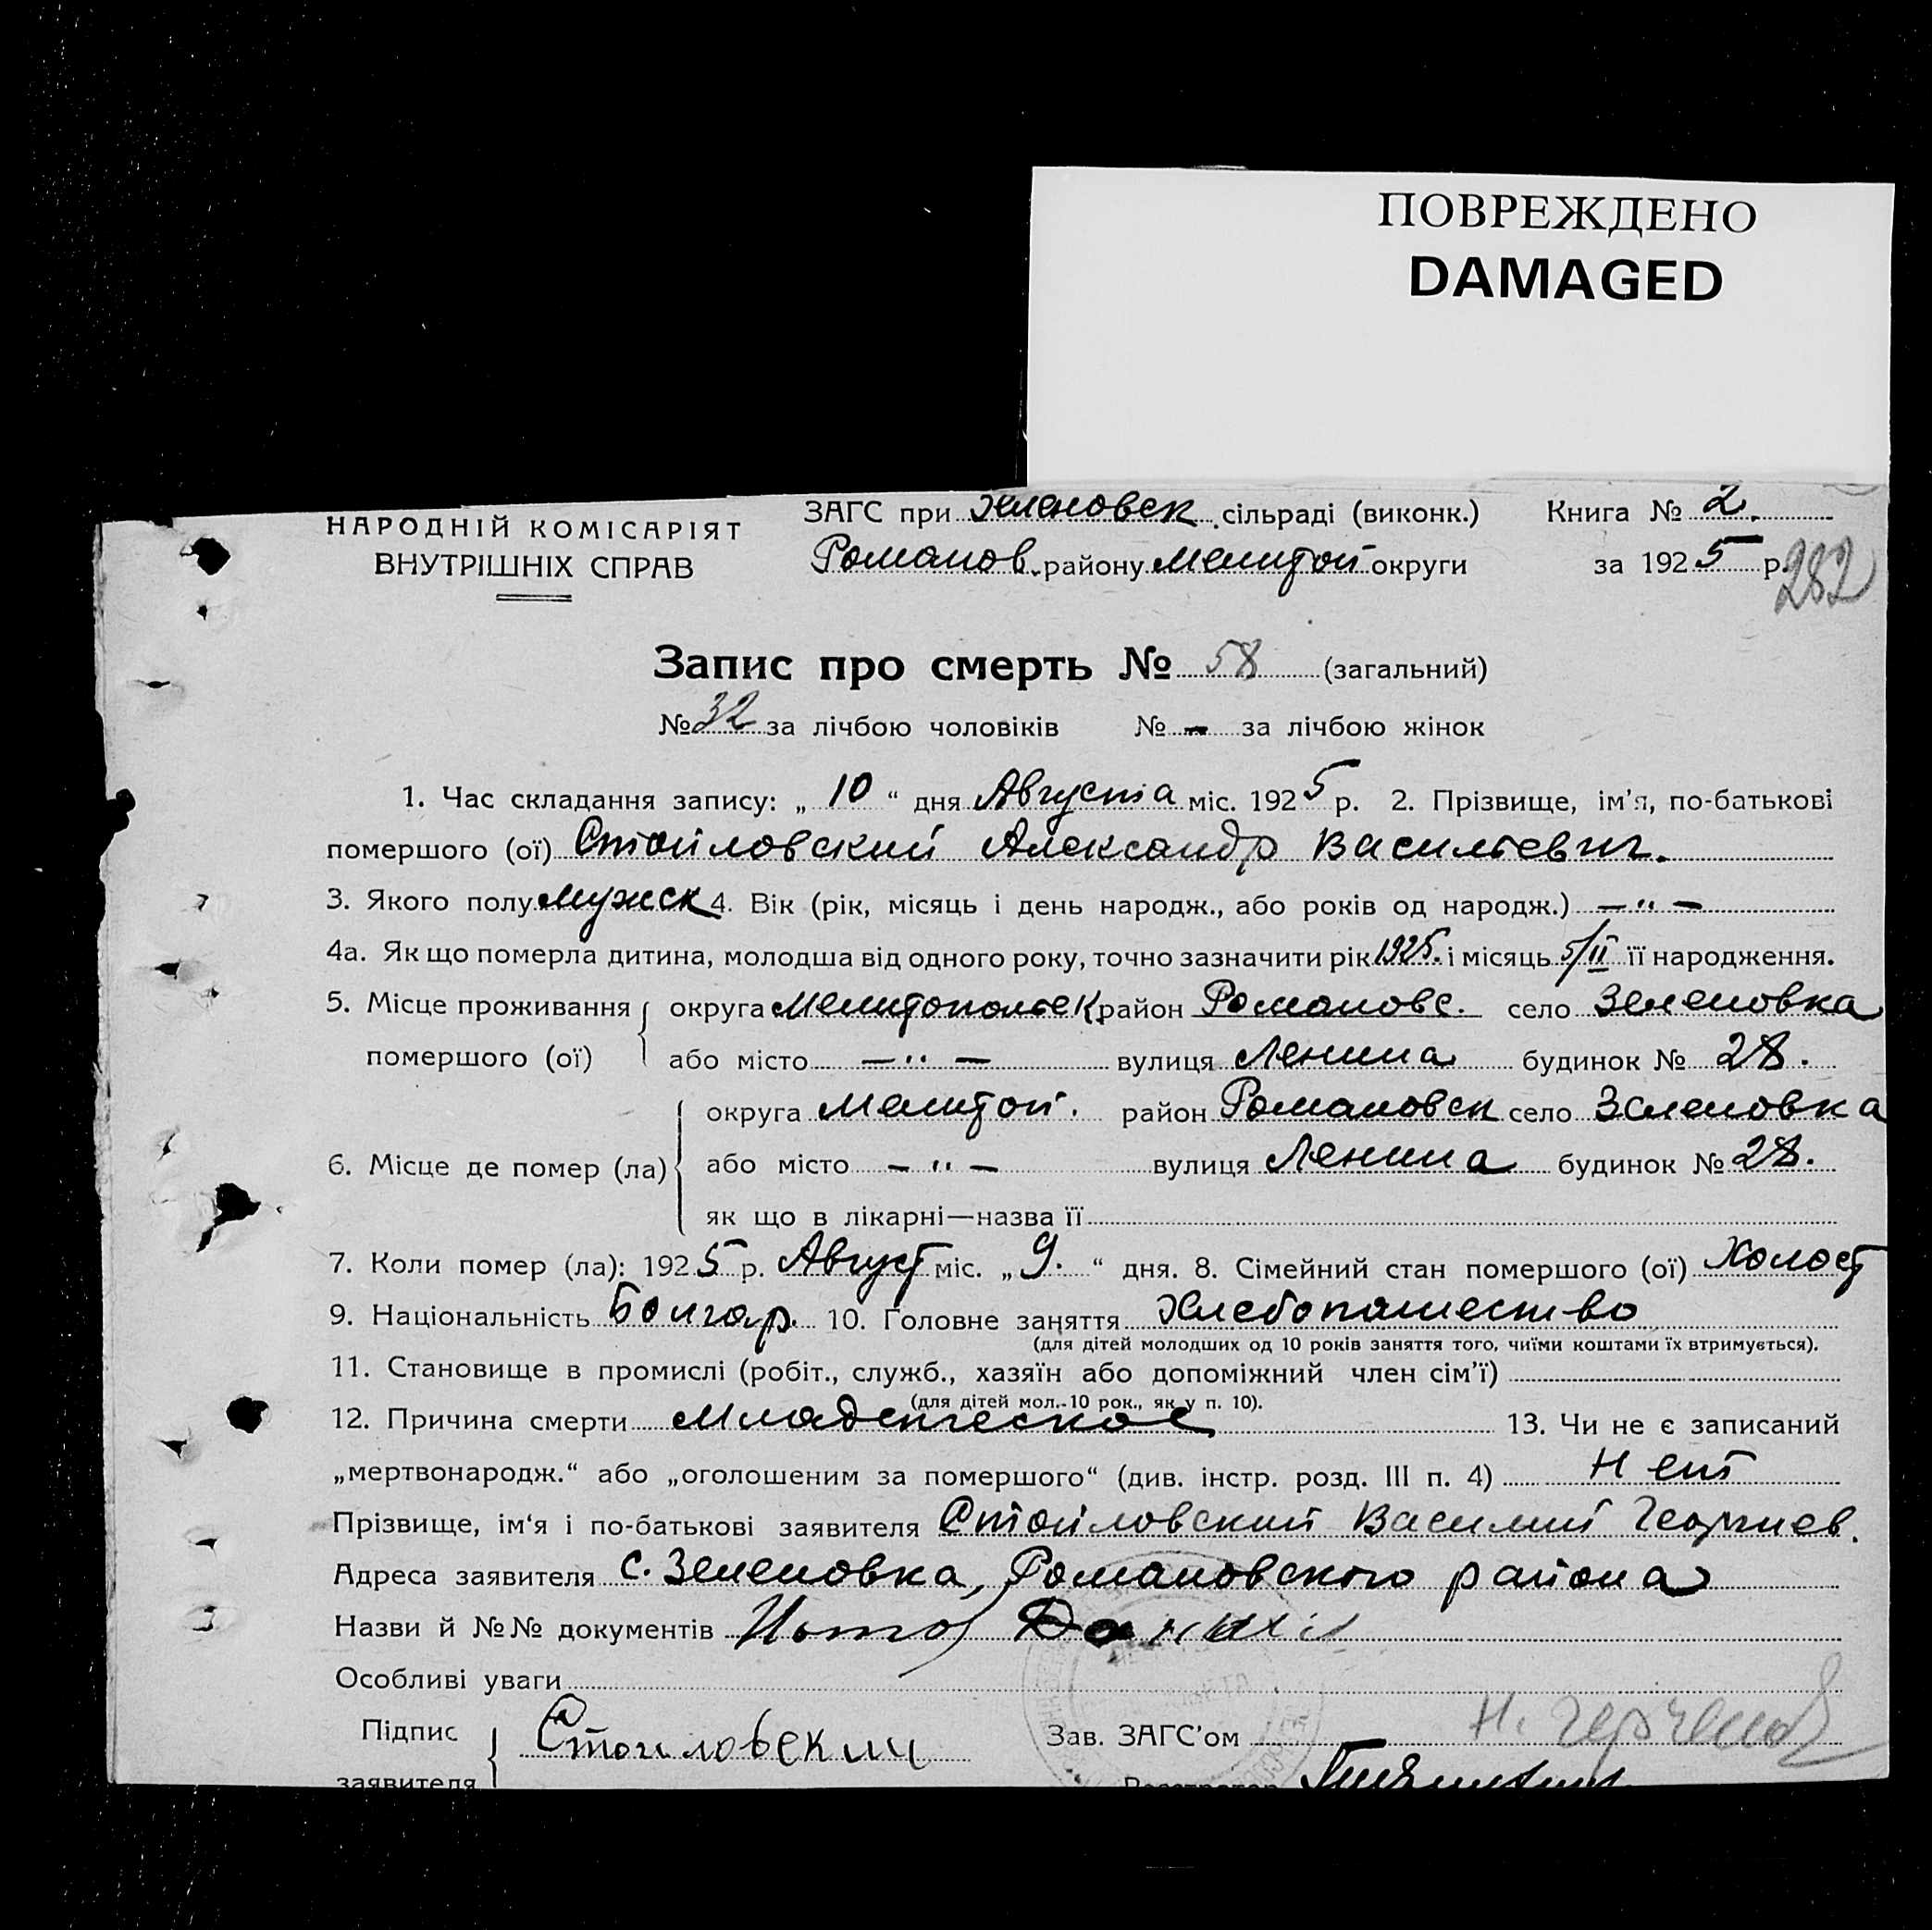 ПОВРЕЖДЕНО
DAMAGED
НАРОДНІЙ КОМІСАРІЯТ
ВНУТРІШНІХ СПРАВ
ЗАГС при Зеленовск сільраді (виконк.) Книга № 2.
Романов. району Мелитоп округи за 1925 р.
282
Запис про смерть № 58 (загальний)
№ 32 за лічбою чоловіків № - за лічбою жінок
1. Час складання запису: „ 10 “ дня Августа міс. 1925 р. 2. Прізвище, ім'я, по-батькові
помершого (ої) Стойловский Александр Васильевич.
3. Якого полу мужск 4. Вік (рік, місяць і день народж., або років од народж.) — " —
4а. Як що померла дитина, молодша від одного року, точно зазначити рік 1925. і місяць 5/II її народження.
5. Місце проживання помершого (ої) округа Мелитопольск район Романовс. село Зеленовка
або місто — " — вулиця Ленина будинок № 28.
6. Місце де помер (ла) округа Мелитоп. район Романовск село Зеленовка
або місто — " — вулиця Ленина будинок № 28.
як що в лікарні—назва її
7. Коли помер (ла): 1925 р. Август міс. „ 9. “ дня. 8. Сімейний стан помершого (ої) Холост
9. Національність Болгар. 10. Головне заняття Хлебопашество
(для дітей молодших од 10 років заняття того, чиїми коштами їх втримується).
11. Становище в промислі (робіт., служб., хазяїн або допоміжний член сім'ї)
(для дітей мол. 10 рок., як у п. 10).
12. Причина смерти Младенческое 13. Чи не є записаний
„мертвонародж.“ або „оголошеним за помершого“ (див. інстр. розд. III п. 4) Нет
Прізвище, ім'я і по-батькові заявителя Стойловский Василий Георгиев.
Адреса заявителя с. Зеленовка, Романовского района
Назви й №№ документів
Особливі уваги
Підпис заявителя Стоиловский Зав. ЗАГС'ом Н.
Реєстратор